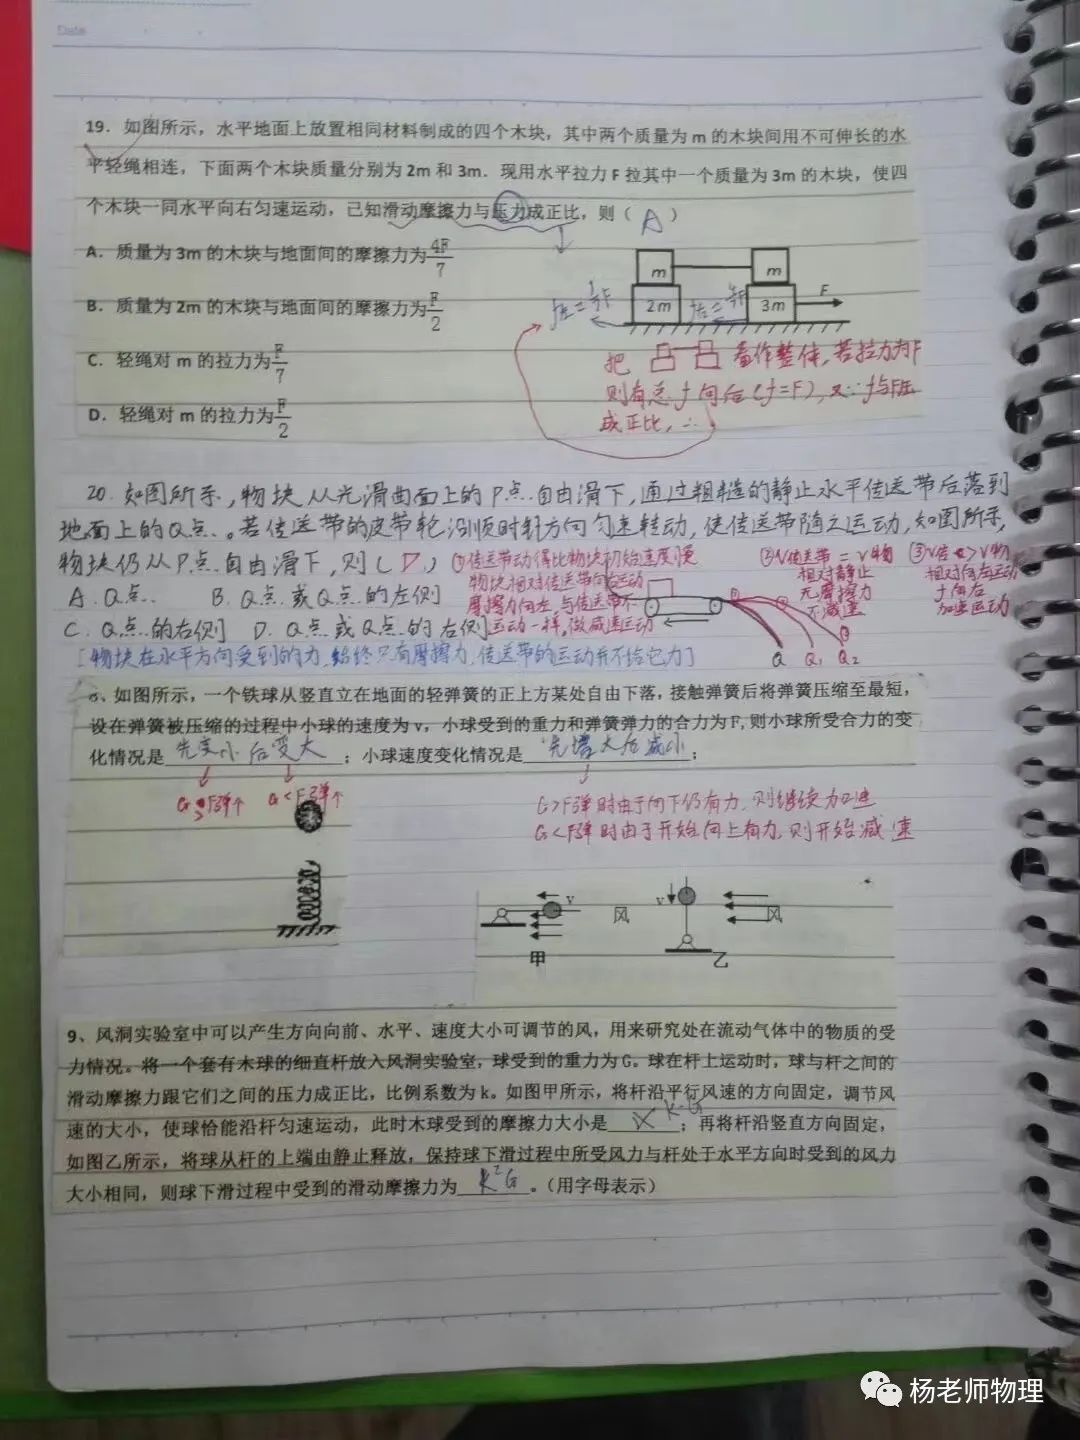 Date
19．如图所示，水平地面上放置相同材料制成的四个木块，其中两个质量为 m 的木块间用不可伸长的水
平轻绳相连，下面两个木块质量分别为 2m 和 3m．现用水平拉力 F 拉其中一个质量为 3m 的木块，使四
个木块一同水平向右匀速运动，已知滑动摩擦力与压力成正比，则（ A ）
A．质量为 3m 的木块与地面间的摩擦力为4F/7
B．质量为 2m 的木块与地面间的摩擦力为F/2
C．轻绳对 m 的拉力为F/7
D．轻绳对 m 的拉力为F/2
m m
2m 3m F
把 看作整体，若拉力为F
则有总f向后(f=F)，又∵f与F压
成正比，∴
20．如图所示，物块从光滑曲面上的P点自由滑下，通过粗糙的静止水平传送带后落到
地面上的Q点。若传送带的皮带轮沿顺时针方向匀速转动，使传送带随之运动，如图所示，
物块仍从P点自由滑下，则（ D ）
A．Q点 B．Q点或Q点的左侧
C．Q点的右侧 D．Q点或Q点的右侧
①传送带动得比物块初始速度慢
物块相对传送带向右运动
摩擦力向左，与传送带不
运动一样，做减速运动
②V传送带 = V物
相对静止
无摩擦力
不减速
③V传>V物
相对向左运动
f向右
加速运动
Q Q₁ Q₂
[物块在水平方向受到的力，始终只有摩擦力，传送带的运动并不给它力]
、如图所示，一个铁球从竖直立在地面的轻弹簧的正上方某处自由下落，接触弹簧后将弹簧压缩至最短，
设在弹簧被压缩的过程中小球的速度为 v，小球受到的重力和弹簧弹力的合力为 F, 则小球所受合力的变
化情况是 先变小后变大 ；小球速度变化情况是 先增大后减小 ；
G>F弹个 G<F弹个
G>F弹时由于向下仍有力，则继续加速
G<F弹时由于开始向上有力，则开始减速
v 风 v 风
甲 乙
9、风洞实验室中可以产生方向向前、水平、速度大小可调节的风，用来研究处在流动气体中的物质的受
力情况。将一个套有木球的细直杆放入风洞实验室，球受到的重力为 G。球在杆上运动时，球与杆之间的
滑动摩擦力跟它们之间的压力成正比，比例系数为 k。如图甲所示，将杆沿平行风速的方向固定，调节风
速的大小，使球恰能沿杆匀速运动，此时木球受到的摩擦力大小是 k·G ；再将杆沿竖直方向固定，
如图乙所示，将球从杆的上端由静止释放，保持球下滑过程中所受风力与杆处于水平方向时受到的风力
大小相同，则球下滑过程中受到的滑动摩擦力为 k²G 。（用字母表示）
杨老师物理